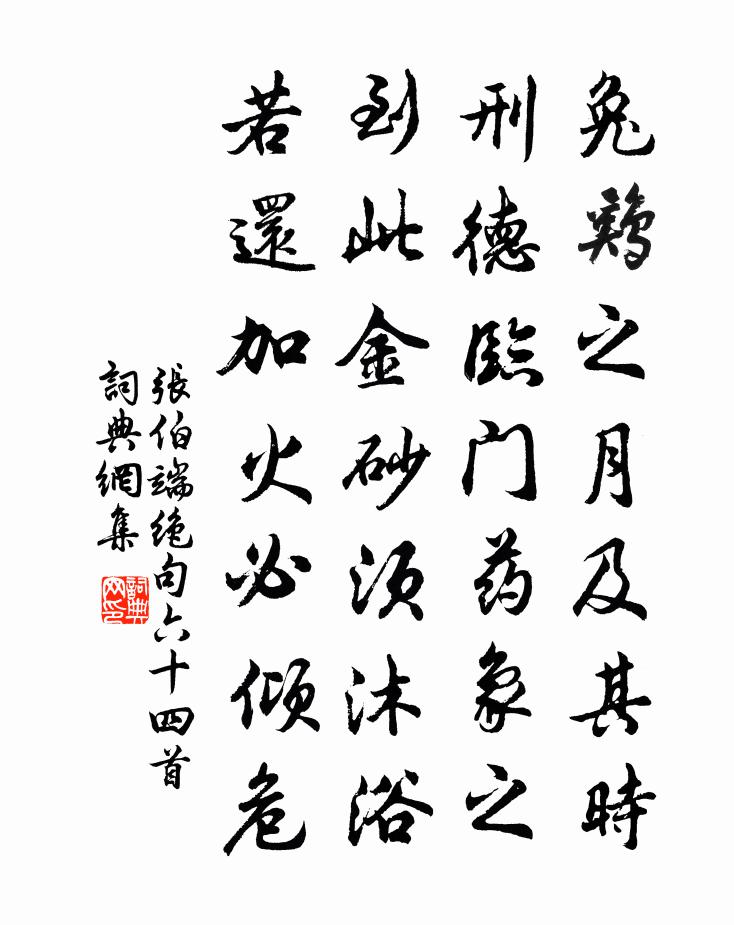 兔鷄之月及其時
刑德臨门药象之
到此金砂须沐浴
若還加火必倾危
張伯端绝句六十四首
詞典網集
詞典网印